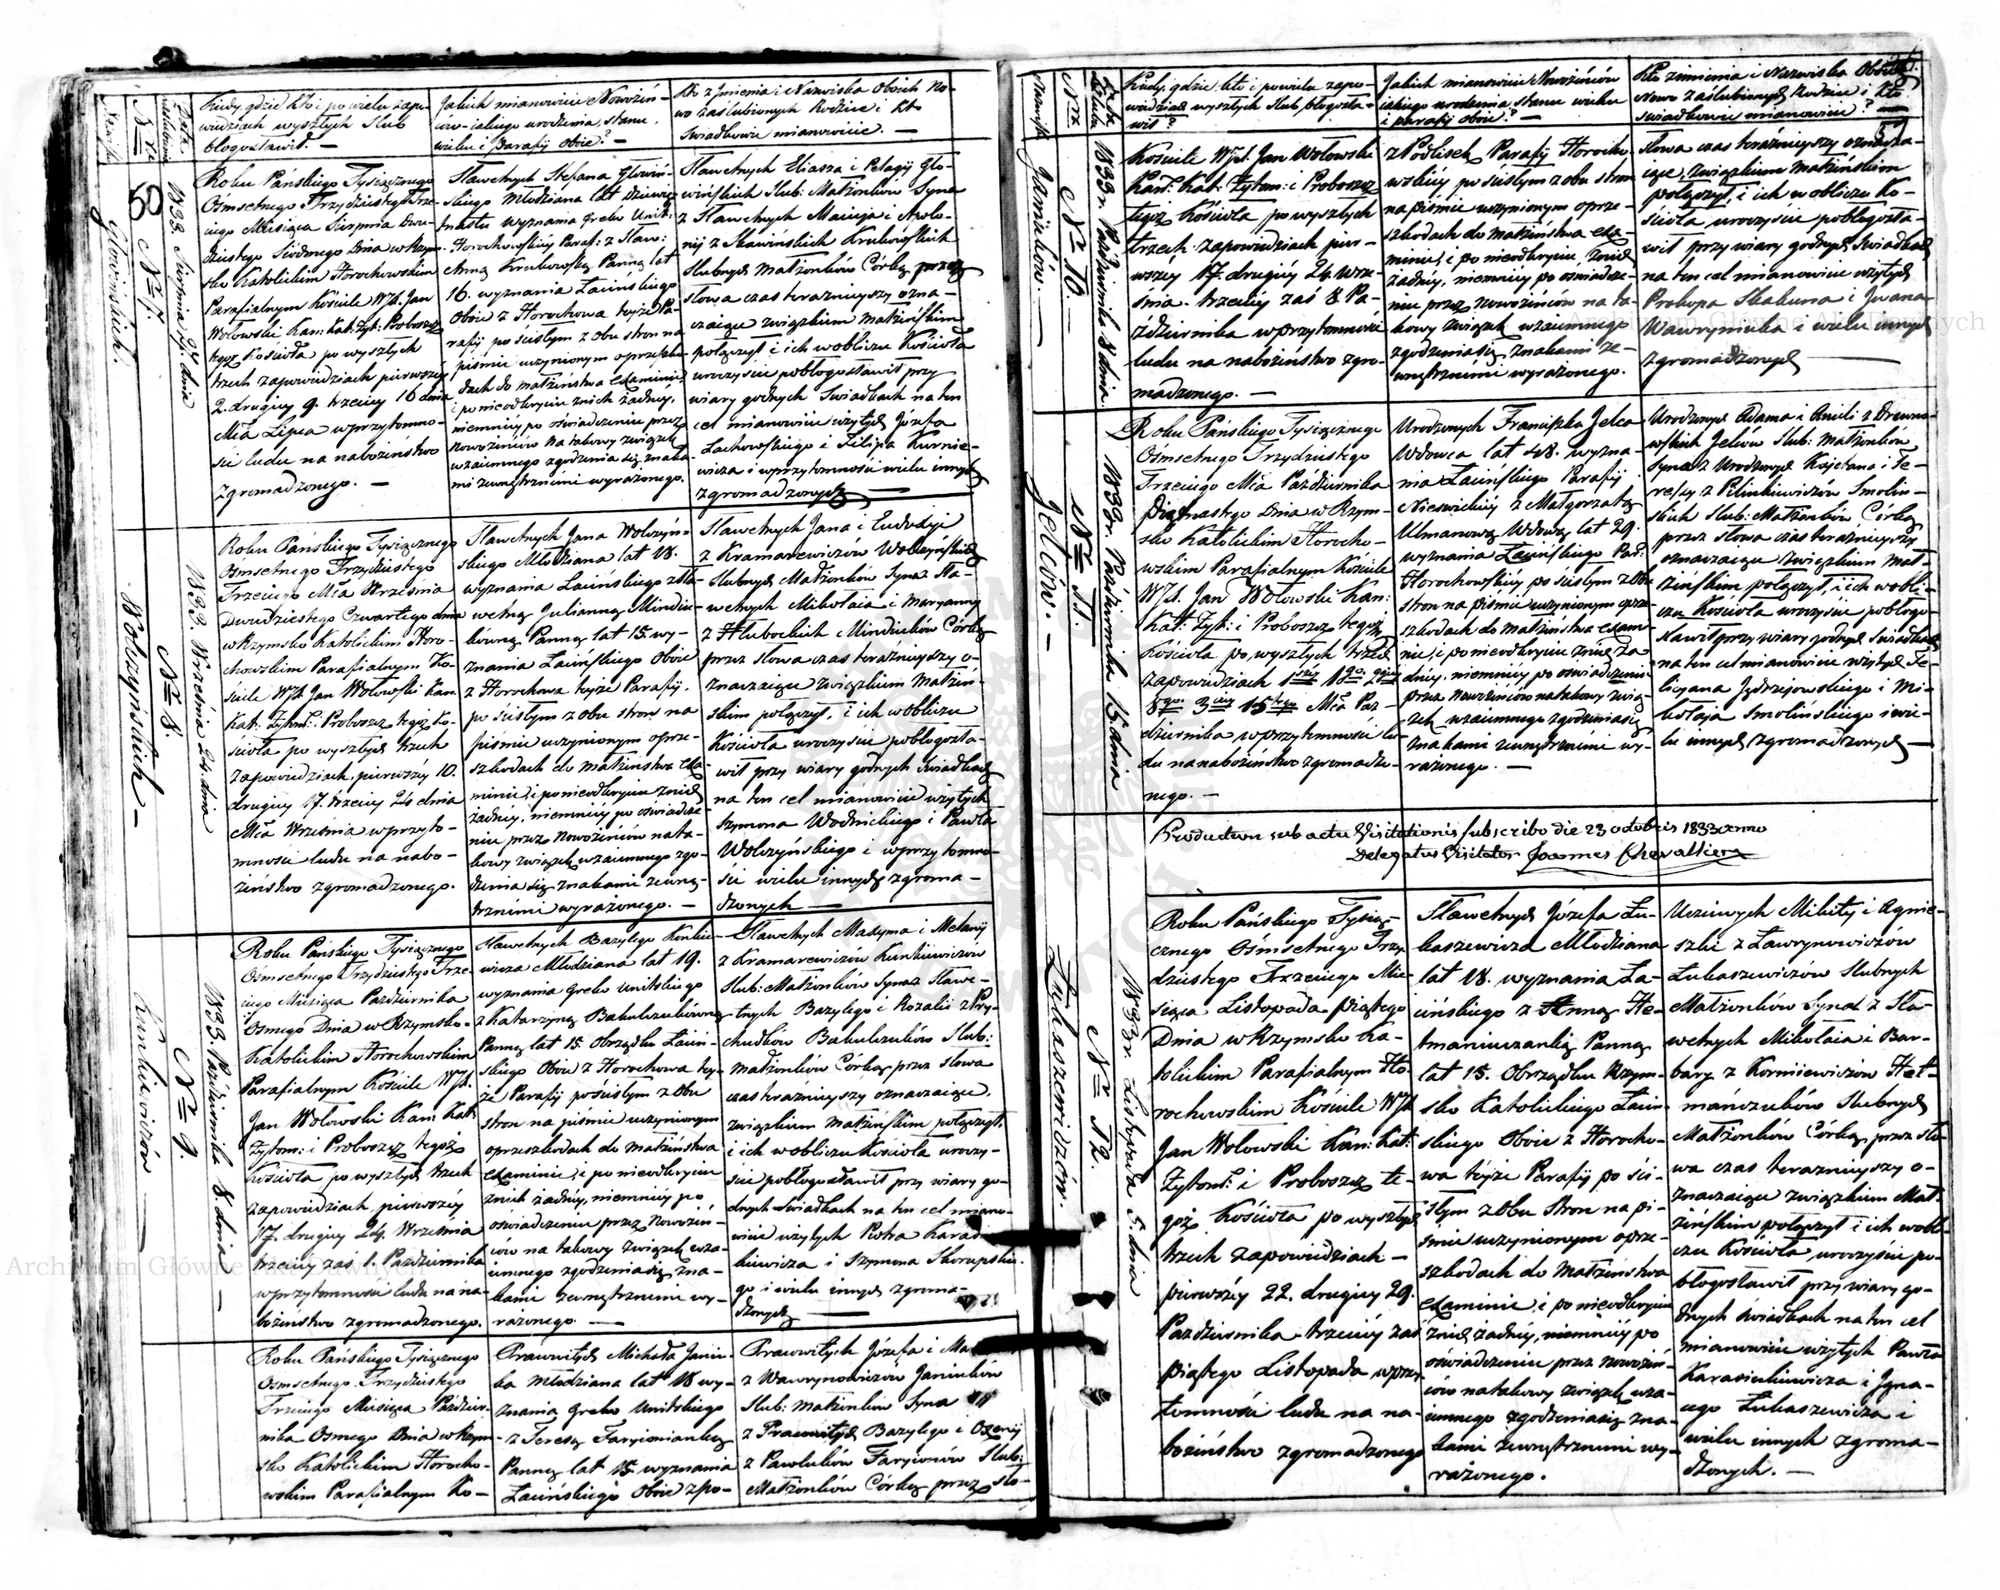 Kiedy, gdzie kto i po wielu zapo-
wiedziach wyszłych Ślub
błogosławił. —
Jakich mianowicie Nowożeń-
ców iakiego urodzenia, stanu,
wieku i Parafij oboie? —
Kto z Jmienia i Nazwiska Obóch No-
wo zaślubionych Rodzice i kto
Świadkowie mianowicie. —
50
Głowińskich.
N= 7.
1833 Sierpnia 27. dnia
Roku Pańskiego Tysiącznego
Osmsetnego Trzydziestego Trze-
ciego Miesiąca Sierpnia Dwu-
dziestego Siodmego Dnia w Rzym-
sko Katolickim Horochowskim
Parafialnym Kościele WJX. Jan
Wołowski Kan: Kat: Żyt: Proboszcz
tegoż Kościoła po wyszłych
trzech zapowiedziach pierwszey
2. drugiey 9. trzeciey 16 dnia
Mca Lipca w przytomno-
ści ludu na nabożeństwo
zgromadzonego. —
Sławetnych Stefana Głowiń-
skiego Młodziana lat dziewię-
tnastu wyznania Greko Unit:
Horochowskiey Paraf: z Sław:
Anną Krukowską Panną lat
16. wyznania Łacińskiego
Oboie z Horochowa teyże Pa-
rafij po ścisłym z obu stron na
piśmie uczynionym o przeszko-
dach do małżeństwa examinie,
i po nieodkryciu z nich żadney,
niemniey po oświadczeniu przez
Nowożeńców na takowy związek
wzaiemnego zgodzenia się znaka-
mi zewnętrznemi wyrażonego.
Sławetnych Eliasza i Pelagij Gło-
wińskich Ślub: Małżonków Syna
z Sławetnych Macieja i Apolo-
nij z Sławińskich Krukowskich
Ślubnych Małżonków Córką przez
słowa czas teraznieyszy ozna-
czaiące związkiem małżeńskim
połączył i ich w obliczu Kościoła
uroczyscie pobłogosławił przy
wiary godnych Świadkach na ten
cel mianowicie użytych Józefa
Lachowskiego i Filipa Kurnie-
wicza i w przytomności wielu innych
zgromadzonych —
Wołczyńskich —
N= 8.
1833. Września 24. dnia
Roku Pańskiego Tysiącznego
Osmsetnego Trzydziestego
Trzeciego Mca Września
Dwudziestego Czwartego dnia
w Rzymsko Katolickim Horo-
chowskim Parafialnym Ko-
ściele WJX Jan Wołowski Kan.
Kat: Żytom: Proboszcz tegoż Ko-
ścioła po wyszłych trzech
zapowiedziach, pierwszey 10.
drugiey 17. trzeciey 24 dnia
Mca Września w przyto-
mności ludu na nabo-
żeństwo zgromadzonego.
Sławetnych Jana Wołczyń-
skiego Młodziana lat 18.
wyznania Łacińskiego z Sła-
wetną Julianną Mindiu-
kowną Panną lat 15. wy-
znania Łacińskiego Oboie
z Horochowa teyże Parafij,
po ścisłym z obu stron na
piśmie uczynionym o prze-
szkodach do małżeństwa exa-
minie, i po nieodkryciu z nich
żadney, niemniey po oświadcze-
niu przez Nowożeńców na ta-
kowy związek wzaiemnego zgo-
dzenia się znakami zewnę-
trznemi wyrażonego. —
Sławetnych Jana i Eudodyi
z Kramarewiczów Wołczyńskich
Ślubnych Małżonków Syna z Sła-
wetnych Mikołaia i Maryanny
z Hlubockich Mindiuków Córką
przez słowa czas teraznieyszy o-
znaczaiące związkiem Małżeń-
skim połączył, i ich w obliczu
Kościoła uroczyscie pobłogosła-
wił przy wiary godnych Świadkach
na ten cel mianowicie użytych
Szymona Wodnickiego i Pawła
Wołczyńskiego i w przytomno-
ści wielu innych zgroma-
dzonych —
Kunkiewiczów
N= 9.
1833. Października 8 dnia —
Roku Pańskiego Tysiącznego
Osmsetnego Trzydziestego Trze-
ciego Miesiąca Października
Osmego Dnia w Rzymsko-
Katolickim Horochowskim
Parafialnym Kościele WJX.
Jan Wołowski Kan: Kat:
Żytom: i Proboszcz tegoż
Kościoła po wyszłych trzech
zapowiedziach, pierwszey
17. drugiey 24. Września
trzeciey zaś 1. Października
w przytomności ludu na na-
bożeństwo zgromadzonego.
Sławetnych Bazylego Kunkie-
wicza Młodziana lat 19.
wyznania Greko unitskiego
z Katarzyną Bakulczukówną
Panną lat 15. Obrządku Łaciń-
skiego Oboie z Horochowa tey-
że Parafij po ścisłym z obu
stron na piśmie uczynionym
o przeszkodach do małżeństwa
examinie, i po nieodkryciu
z nich żadney, niemniey po
oświadczeniu przez Nowożeń-
ców na takowy związek wza-
iemnego zgodzenia się zna-
kami zewnętrznemi wy-
rażonego. —
Sławetnych Maxyma i Melanij
z Kramarewiczów Kunkiewiczów
Ślub: Małżonków Syna z Sławe-
tnych Bazylego i Rozalii z Pry-
chudków Bakulczuków Ślub:
małżonków Córką przez słowa
czas teraznieyszy oznaczaiące,
związkiem małżeńskim połączył,
i ich w obliczu Kościoła uroczy-
scie pobłogosławił przy wiary go-
dnych Świadkach na ten cel miano-
wicie użytych Piotra Karas-
kiewicza i Szymona Skorupskie-
go i wielu innych zgroma-
dzonych —
Roku Pańskiego Tysiącznego
Osmsetnego Trzydziestego
Trzeciego Miesiąca Paździer-
nika Osmego Dnia w Rzym-
sko Katolickim Horocho-
wskim Parafialnym Ko-
Prawowitych Michała Janiu-
ka Młodziana lat 18 wy-
znania Greko Unitskiego
z Teresą Faryionianką
Panną lat 15. wyznania
Łacińskiego Oboie z Po-
Prawowitych Józefa i Ma
z Wawrynowiczów Janiuków
Ślub: małżonków Syna
z Prawowitych Bazylego i Oxenij
z Pawluków Faryionów Ślub:
Małżonków Córką przez sło-
Kiedy, gdzie kto i po wielu zapo-
wiedziach wyszłych Ślub błogosła-
wił?
Jakich mianowicie Nowożeńców
iakiego urodzenia, stanu wieku
i parafij oboie? —
Kto z imienia i Nazwiska Obóch
Nowo Zaślubionych Rodzice i kto
świadkowie mianowicie? —
51
Janiuków.
N= 10.
1833 r. Października 8 dnia.
Kościele WJX. Jan Wołowski
Kan: Kat: Żytom: i Proboszcz
tegoż Kościoła po wyszłych
trzech zapowiedziach pier-
wszey 17. drugiey 24 Wrze-
śnia. trzeciey zaś 8. Pa-
ździernika w przytomności
ludu na nabożeństwo zgro-
madzonego. —
z Podlisek Parafij Horocho-
wskiey po ścisłym z obu stron
na piśmie uczynionym o prze-
szkodach do małżeństwa exa-
minie, i po nieodkryciu z nich
żadney, niemniey po oświadcze-
niu przez Nowożeńców na ta-
kowy związek wzaiemnego
zgodzenia się, znakami ze-
wnętrznemi wyrażonego.
Słowa czas teraznieyszy oznacza-
iące, związkiem małżeńskim
połączył, i ich w obliczu Ko-
ścioła, uroczyscie pobłogosła-
wił przy wiary godnych Świadkach
na ten cel mianowicie użytych
Prokopa Skakuna i Jwana
Wawryniuka i wielu innych
zgromadzonych —
Jelców. —
N= 11.
1833 r. Października 15 dnia
Roku Pańskiego Tysiącznego
Osmsetnego Trzydziestego
Trzeciego Mca Października
Piętnastego Dnia w Rzym-
sko Katolickim Horocho-
wskim Parafialnym Kościele
WJX. Jan Wołowski Kan:
Kat: Żyt: i Proboszcz tegoż
Kościoła po wyszłych trzech
zapowiedziach 1szey 1go 2giey
8go 3ciey 15tego Mca Paź-
dziernika w przytomności lu-
du na nabożeństwo zgromadzo-
nego. —
Urodzonych Franciszka Jelca
Wdowca lat 48. wyzna-
nia Łacińskiego Parafij
Nieswickiey z Małgorzatą
Ulmanową Wdową lat 29.
wyznania Łacińskiego Par:
Horochowskiey po ścisłym z obu
stron na piśmie uczynionym o prze-
szkodach do małżeństwa exam-
nie, i po nieodkryciu z nich ża-
dney, niemniey po oświadczeniu
przez Nowożeńców na takowy zwią-
zek wzaiemnego zgodzenia się
znakami zewnętrznemi wy-
rażonego. —
Urodzonych Adama i Anieli z Drewno-
wskich Jelców Ślub: małżonków
Syna z Urodzonych Kajetana i Te-
resy z Pilinkiewiczów Smoliń-
skich Ślub: Małżonków Córką
przez słowa czas teraznieyszy
oznaczaiące związkiem mał-
żeńskim połączył, i ich w obli-
czu Kościoła uroczyscie pobłogo-
sławił przy wiary godnych Świadkach
na ten cel mianowicie użytych Fe-
licjana Jędrzejowskiego i Mi-
kołaja Smolińskiego i wie-
lu innych zgromadzonych —
Productum sub actu Visitationis subscribo die 23 octobris 1833 anno
Delegatus Visitator Joannes Chevallier
Łukaszewiczów.
N= 12.
1833 r. Listopada 5. dnia
Roku Pańskiego Tysią-
cznego Ośmsetnego Trzy-
dziestego Trzeciego Mie-
siąca Listopada piątego
Dnia w Rzymsko Ka-
tolickim Parafialnym Ho-
rochowskim Kościele WJX
Jan Wołowski Kan: Kat:
Żytom: i Proboszcz te-
goż Kościoła po wyszłych
trzech zapowiedziach —
pierwszey 22. drugiey 29.
Października trzeciey zaś
piątego Listopada w przy-
tomności ludu na na-
bożeństwo zgromadzonego
Sławetnych Józefa Łu-
kaszewicza Młodziana
lat 18. wyznania Ła-
cińskiego z Anną He-
tmaniuczanką Panną
lat 15. Obrządku Rzym-
sko Katolickiego Łaciń-
skiego Oboie z Horocho-
wa teyże Parafij po ści-
słym z obu stron na pi-
śmie uczynionym o prze-
szkodach do Małżeństwa
examinie, i po nieodkryciu
z nich żadney, niemniey po
oświadczeniu przez Nowożeń-
ców na takowy związek wza-
iemnego zgodzenia się zna-
kami zewnętrznemi wy-
rażonego.
Uczciwych Mikity i Agnie-
szki z Ławrynowiczów
Łukaszewiczów Ślubnych
Małżonków Syna z Sła-
wetnych Mikołaia i Bar-
bary z Korniewiczów Het-
mańczuków Ślubnych
Małżonków Córką przez sło-
wa czas teraznieyszy o-
znaczaiące związkiem Mał-
żeńskim połączył i ich w obli-
czu Kościoła, uroczyscie po-
błogosławił przy wiary go-
dnych świadkach na ten cel
mianowicie użytych Pawła
Karasinkiewicza i Jgna-
cego Łukaszewicza i
wielu innych zgroma-
dzonych. —
Archiwum Główne Akt Dawnych
Archiwum Główne Akt Dawnych